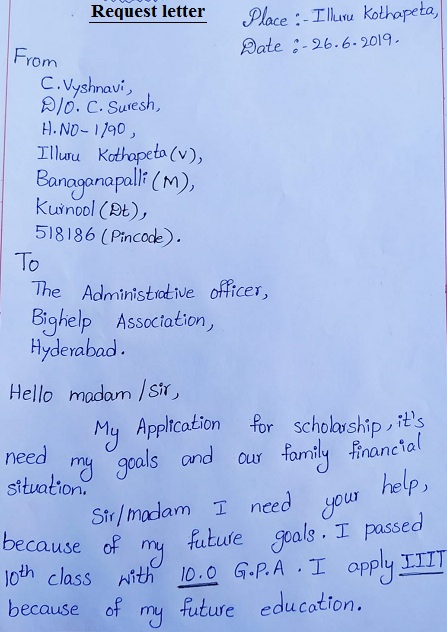 Request letter
Place :- Illuru Kothapeta,
Date :- 26.6.2019.
From
C.Vyshnavi,
D/O. C. Suresh,
H.NO-1/90,
Illuru Kothapeta (V),
Banaganapalli (M),
Kurnool (Dt),
518186 (Pincode).
To
The Administrative officer,
Bighelp Association,
Hyderabad.
Hello madam /Sir,
My Application for scholarship, it's
need my goals and our family financial
situation.
Sir/madam I need your help,
because of my future goals. I passed
10th class with 10.0 G.P.A. I apply IIIT
because of my future education.